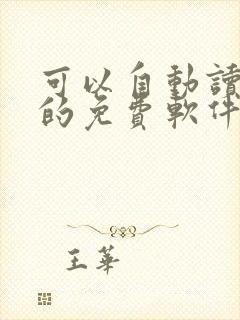 可以自動讀
的免費軟件
王華